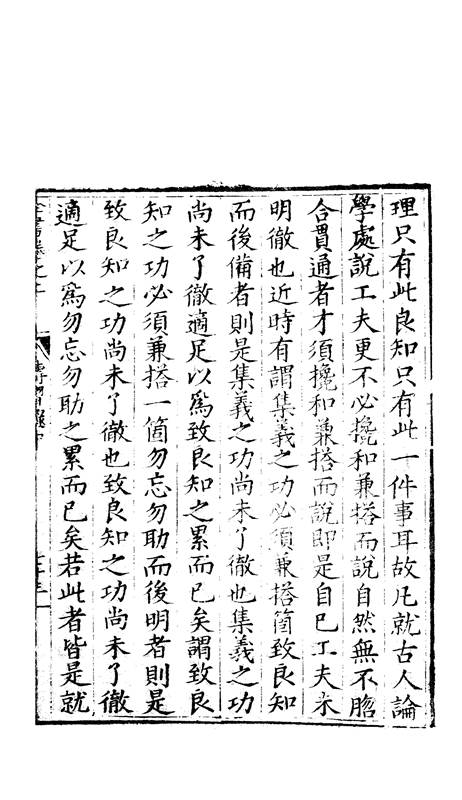 理只有此良知只有此一件事耳故凡就古人論
學處說工夫更不必攙和兼搭而說自然無不脗
合貫通者才須攙和兼搭而說即是自己工夫未
明徹也近時有謂集義之功必須兼搭箇致良知
而後備者則是集義之功尚未了徹也集義之功
尚未了徹適足以為致良知之累而已矣謂致良
知之功必須兼搭一箇勿忘勿助而後明者則是
致良知之功尚未了徹也致良知之功尚未了徹
適足以爲勿忘勿助之累而已矣若此者皆是就